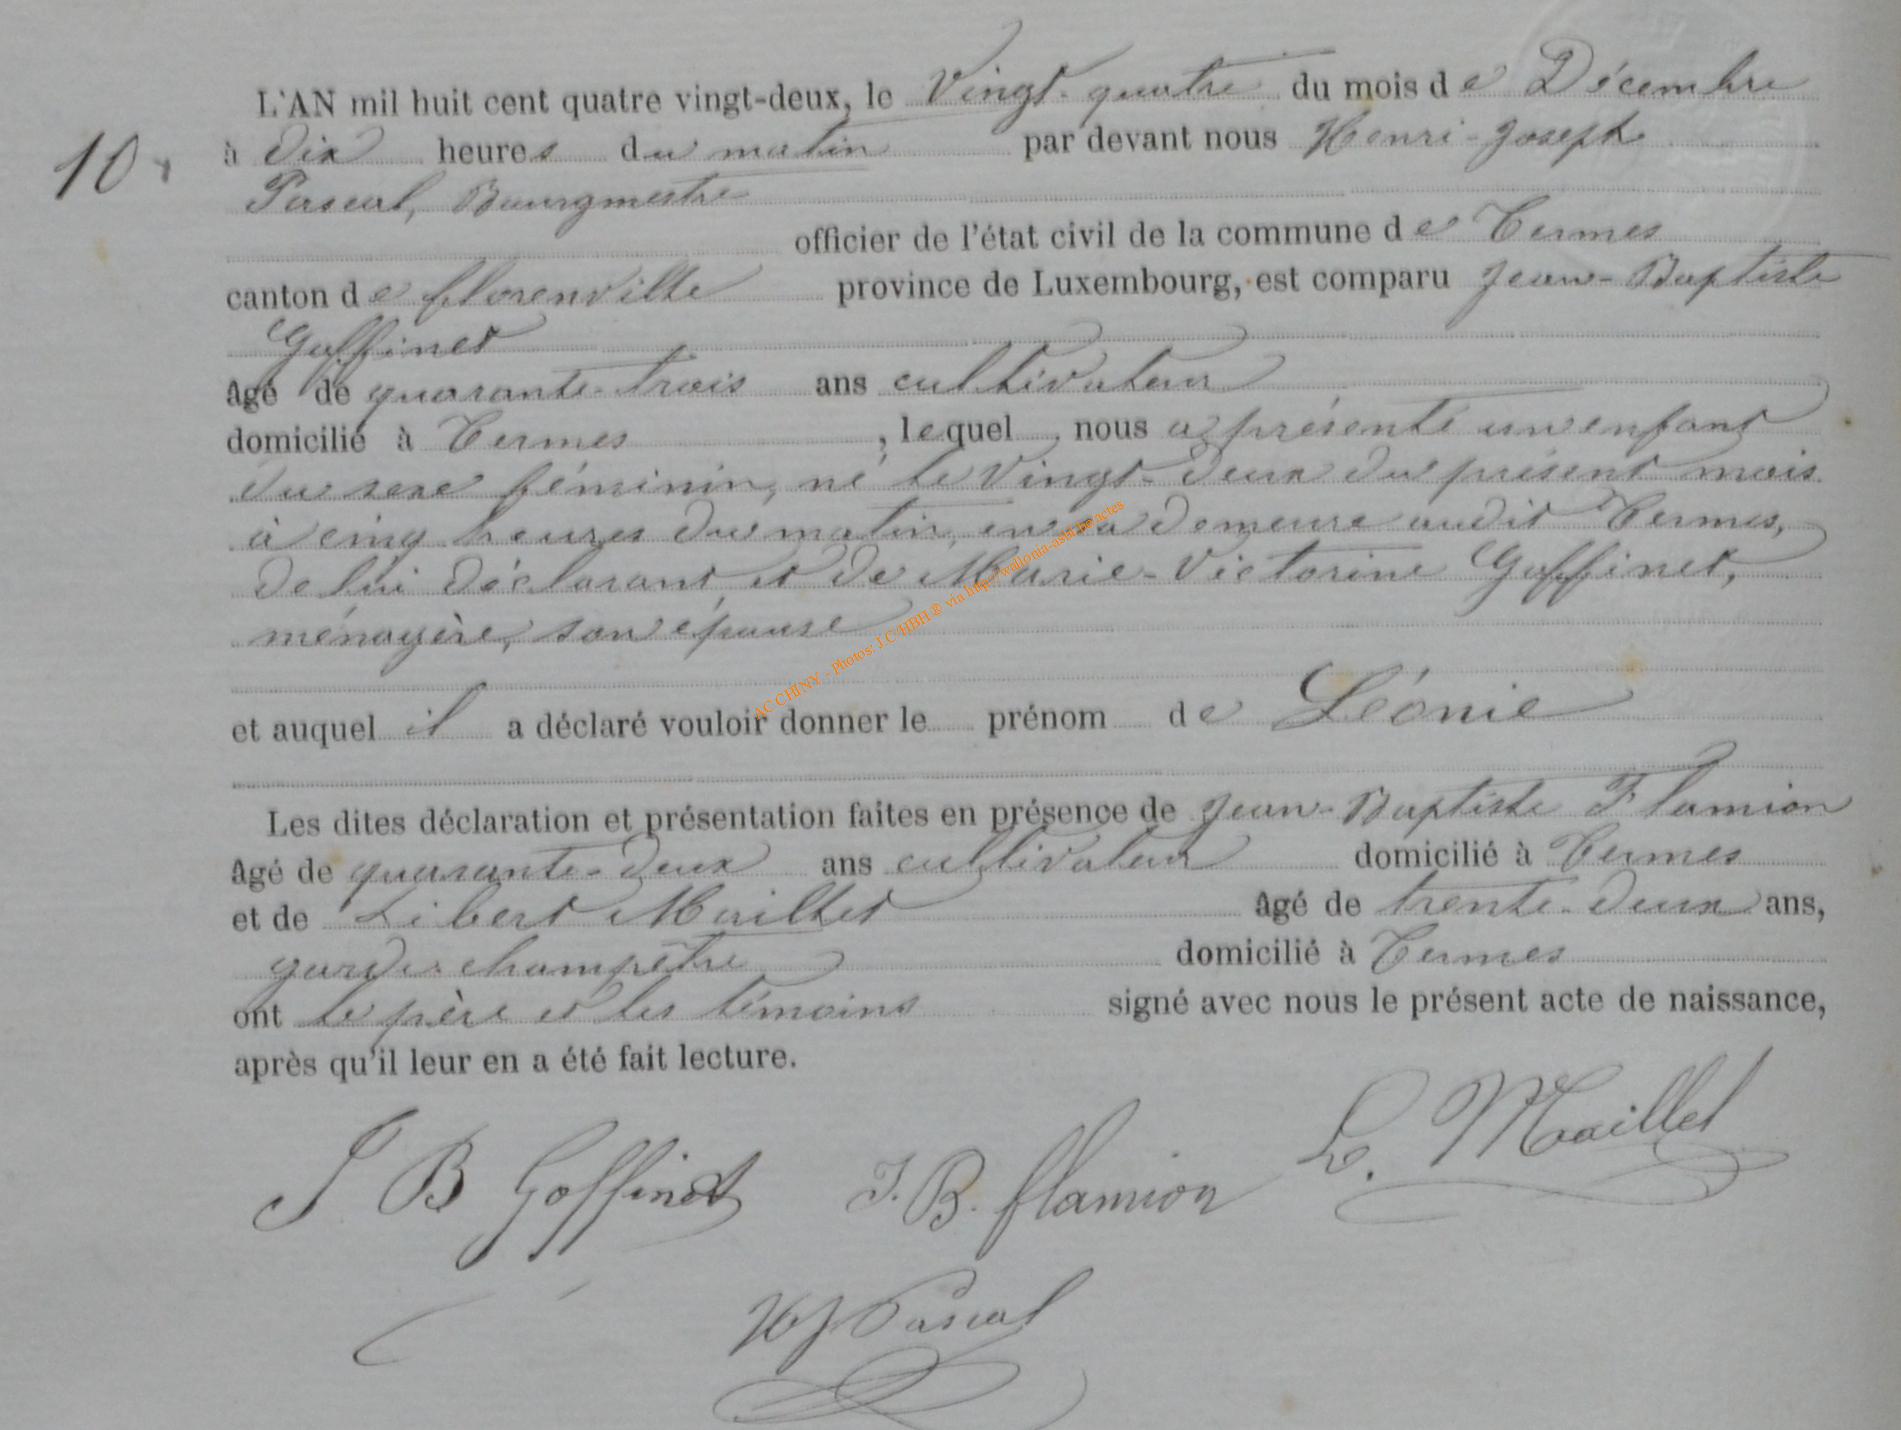 L'AN mil huit cent quatre vingt-deux, le Vingt-quatre du mois de Décembre
10
à dix heures du matin par devant nous Henri-Joseph
Pascal, Bourgmestre
officier de l'état civil de la commune de Termes
canton de florenville province de Luxembourg, est comparu Jean-Baptiste
Goffinet
âgé de quarante-trois ans cultivateur
domicilié à Termes, lequel nous a présenté un enfant
du sexe féminin, né le Vingt-deux du présent mois
à cinq heures du matin, en sa demeure audit Termes,
de lui déclarant et de Marie-Victorine Goffinet,
ménagère, son épouse
ACCHINY - Photos: J.C HBH® via http://wallonia-asbl.be/actes
et auquel il a déclaré vouloir donner le prénom de Léonie
Les dites déclaration et présentation faites en présence de Jean-Baptiste Flamion
âgé de quarante-deux ans cultivateur domicilié à Termes
et de Libert Maillet âgé de trente-deux ans,
garde-champêtre domicilié à Termes
ont le père et les témoins signé avec nous le présent acte de naissance,
après qu'il leur en a été fait lecture.
J B Goffinet J.B. flamion L. Maillet
HJ Pascal